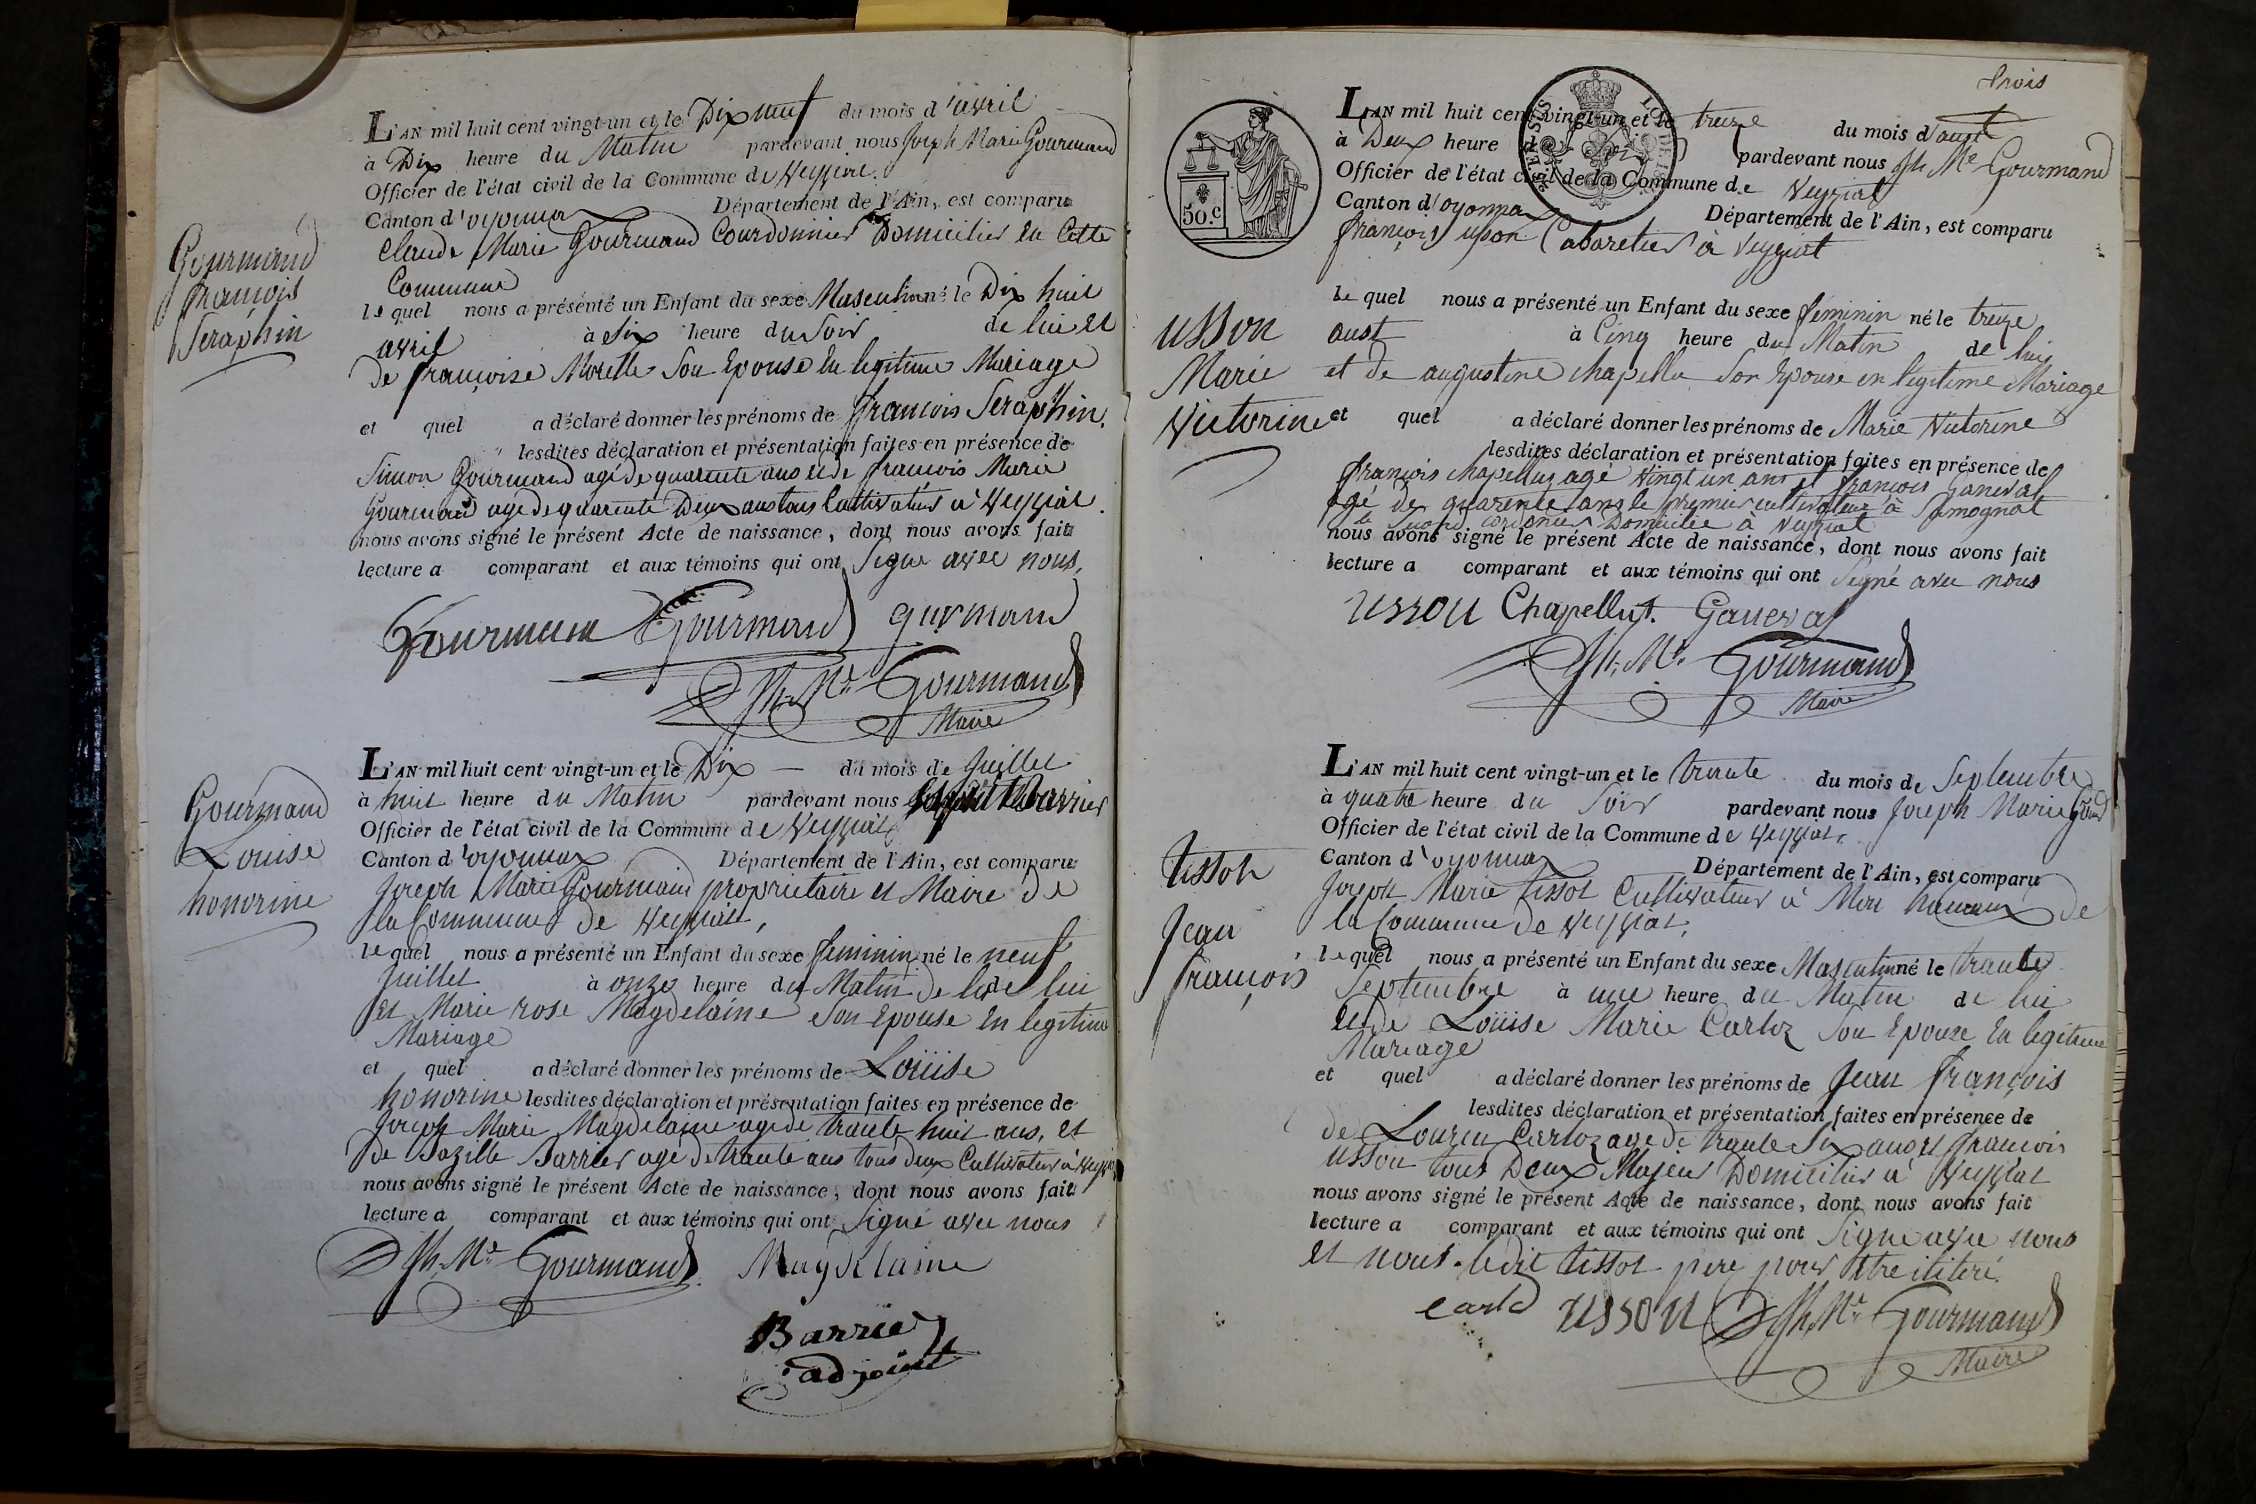 L'AN mil huit cent vingt-un et le Dix neuf du mois d'avril
à Dix heure du Matin pardevant nous Joseph Marie Gourmand
Officier de l'état civil de la Commune de Veyziat.
Canton d'oyonnax Département de l'Ain, est comparu
Claude Marie Gourmand Courdonnier Domicilier en Cette
Commune
Gourmand
françois
Seraphin
le quel nous a présenté un Enfant du sexe Masculin né le Dix huit
avril à Six heure du Soir de lui et
de françoise Morelle Son Epouse en legitime Mariage
et quel a déclaré donner les prénoms de francois Seraphin.
lesdites déclaration et présentation faites en présence de
Simon Gourmand agé de quarente ans et de francois Marie
Gourmand agé de quarente Deux ans tous Cultivateurs à Veyziat.
nous avons signé le présent Acte de naissance, dont nous avons fait
lecture a comparant et aux témoins qui ont Signe avec nous.
Gourmand Gourmand gurmand
Jh. Mie Gourmand
Maire
L'AN mil huit cent vingt-un et le Dix du mois de Juillet
à huit heure du Matin pardevant nous Barrier
Officier de l'état civil de la Commune de Veyziat
Canton d'oyonnax Département de l'Ain, est comparu
Joseph Marie Gourmand proprietaire et Maire de
la Commune de Veyziat,
Gourmand
Louise
honorine
le quel nous a présenté un Enfant du sexe feminin né le neuf
Juillet à onze heure du Matin de lui
et Marie rose Magdelaine Son Epouse en legitime
Mariage
et quel a déclaré donner les prénoms de Loüise
honorine lesdites déclaration et présentation faites en présence de
Joseph Marie Magdelaine agé de trante huit ans, et
de Bazille Barrier agé de trante ans tous deux Cultivateur à Veyziat
nous avons signé le présent Acte de naissance, dont nous avons fait
lecture a comparant et aux témoins qui ont Signé avec nous
Jh. Mie Gourmand Magdelaine
Barrier
adjoint
trois
L'AN mil huit cent vingt-un et le treize du mois d'aust
à Deux heure pardevant nous Jh Me Gourmand
Officier de l'état civil de la Commune de Veyziat
Canton d'oyonnax Département de l'Ain, est comparu
françois usson Cabaretier à Veyziat
50.c
usson
Marie
Victorine
le quel nous a présenté un Enfant du sexe feminin né le treize
aust à Cinq heure du Matin de lui
et de augustine chapellu Son Epouse en legitime Mariage
et quel a déclaré donner les prénoms de Marie Victorine
lesdites déclaration et présentation faites en présence de
françois chapelluz agé vingt un ans et françois Ganeval
agé de quarente ans le premier cultivateur à Samognat
le Second cordonier Domicilié a Veyziat
nous avons signé le présent Acte de naissance, dont nous avons fait
lecture a comparant et aux témoins qui ont Signé avec nous
usson Chapellut. Ganeval
Jh. Me. Gourmand
Maire
L'AN mil huit cent vingt-un et le trente du mois de Septembre
à quatre heure du Soir pardevant nous Joseph Marie
Officier de l'état civil de la Commune de Veyziat.
Canton d'oyonnax Département de l'Ain, est comparu
Joseph Marie tissot Cultivateur à Mon hameaux de
la Commune de Veyziat.
tissot
Jean
françois
le quel nous a présenté un Enfant du sexe Masculin né le trante
Septembre à une heure du Matin de lui
et de Loüise Marie Carloz Son Epouze En legitime
Mariage
et quel a déclaré donner les prénoms de Jean françois
lesdites déclaration et présentation faites en présence de
de Carloz agé de trante Six ans et francois
usson tous Deux Majeur Domicilier à Veyziat
nous avons signé le présent Acte de naissance, dont nous avons fait
lecture a comparant et aux témoins qui ont Signe avec nous
et nont ledit tissot pere pour Etre ilitéré.
carlo usson Jh. Me Gourmand
Maire